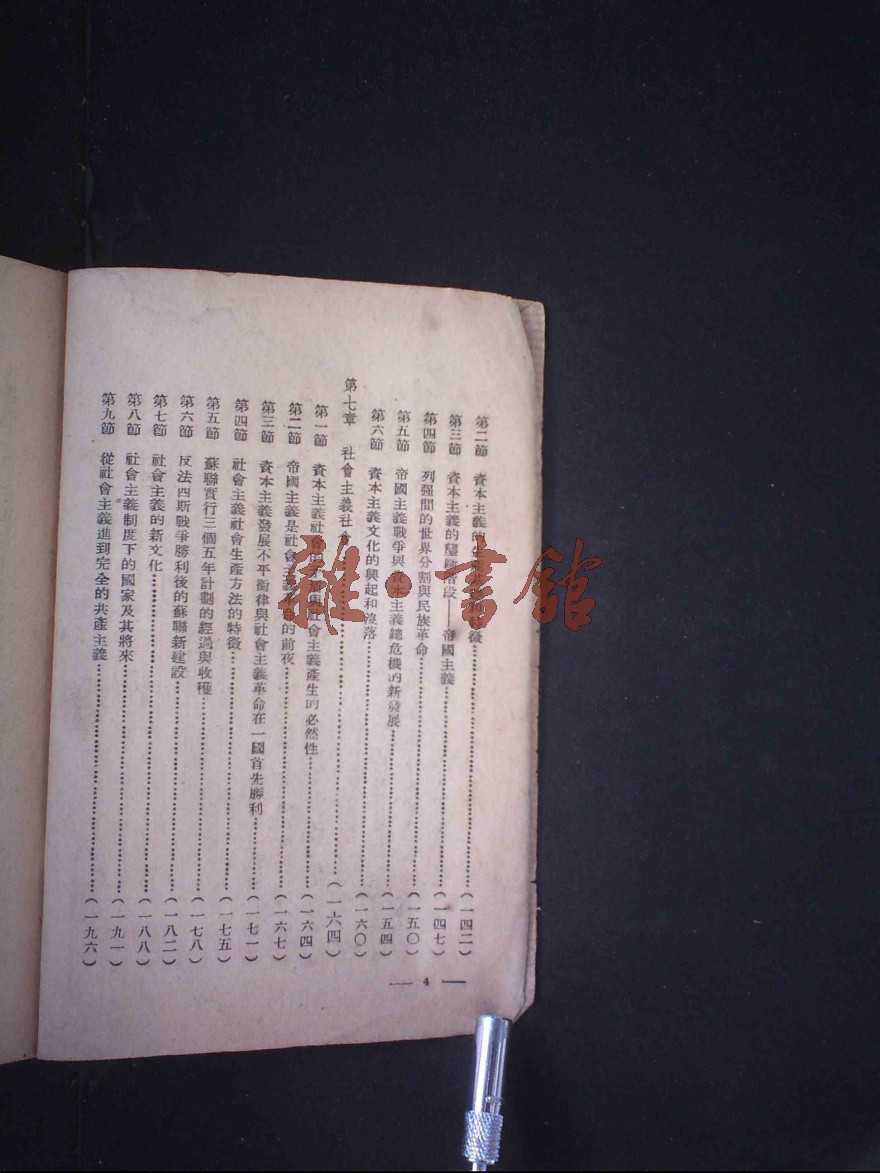 第二節 資本主義的徵………(一四二)
第三節 資本主義的階段——帝國主義………(一四七)
第四節 列强間的世界分割與民族革命………(一五〇)
第五節 帝國主義戰爭與資本主義總危機的新發展………(一五四)
第六節 資本主義文化的興起和沒落………(一六〇)
第七章 社會主義社會………(一六四)
第一節 資本主義社會的與社會主義產生的必然性………(一六四)
第二節 帝國主義是社會主義的前夜………(一六七)
第三節 資本主義發展不平衡律與社會主義革命在一國首先勝利………(一七一)
第四節 社會主義社會生產方法的特徵………(一七五)
第五節 蘇聯實行三個五年計劃的經過與收穫………(一七八)
第六節 反法西斯戰爭勝利後的蘇聯新建設………(一八二)
第七節 社會主義的新文化………(一八八)
第八節 社會主義制度下的國家及其將來………(一九一)
第九節 從社會主義進到完全的共產主義………(一九六)
— 4 —
雜·書館